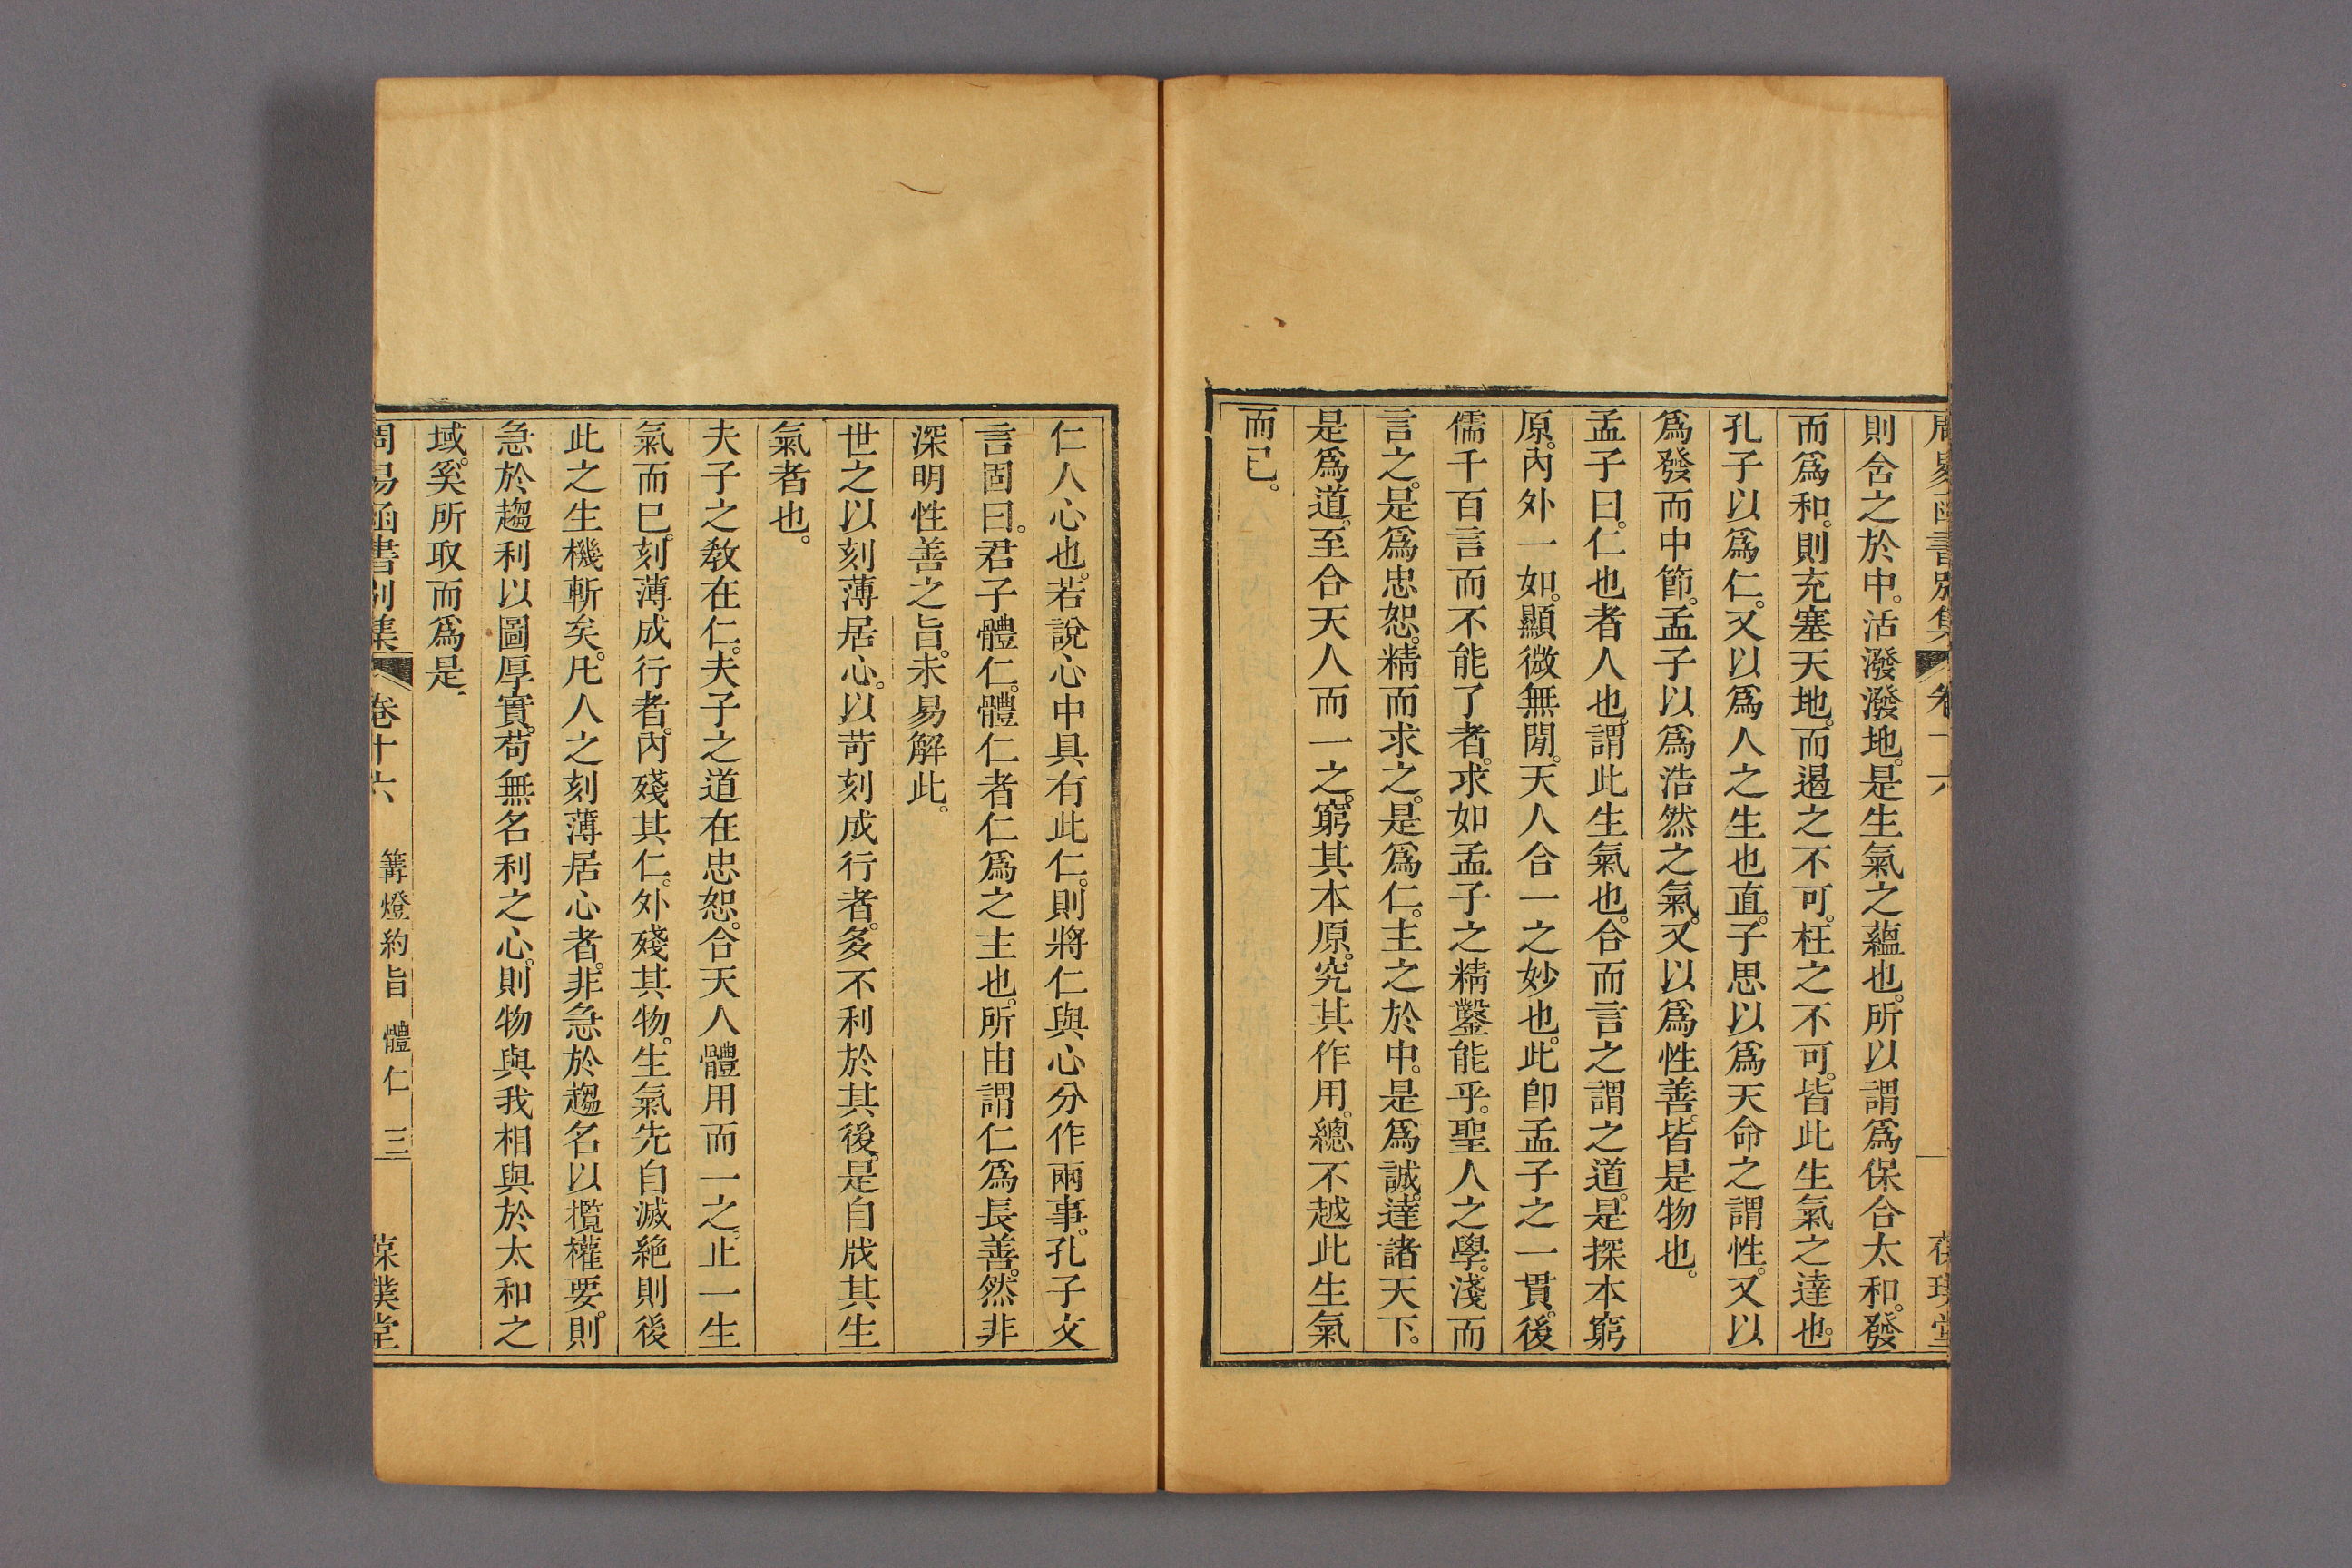 周易函書別集 卷十六 葆璞堂
則含之於中。活潑潑地。是生氣之蘊也。所以謂爲保合太和。發
而爲和。則充塞天地。而遏之不可。枉之不可。皆此生氣之達也。
孔子以爲仁。又以爲人之生也直。子思以爲天命之謂性。又以
爲發而中節。孟子以爲浩然之氣。又以爲性善。皆是物也。
孟子曰。仁也者人也。謂此生氣也。合而言之謂之道。是探本窮
原。內外一如。顯微無閒。天人合一之妙也。此卽孟子之一貫。後
儒千百言而不能了者。求如孟子之精鑿能乎。聖人之學。淺而
言之。是爲忠恕。精而求之。是爲仁。主之於中。是爲誠。達諸天下。
是爲道。至合天人而一之。窮其本原。究其作用。總不越此生氣
而已。
仁人心也。若說心中具有此仁。則將仁與心分作兩事。孔子文
言固曰。君子體仁。體仁者仁爲之主也。所由謂仁爲長善。然非
深明性善之旨。未易解此。
世之以刻薄居心。以苛刻成行者。多不利於其後。是自戕其生
氣者也。
夫子之敎在仁。夫子之道在忠恕。合天人體用而一之。止一生
氣而已。刻薄成行者。內殘其仁。外殘其物。生氣先自滅絶則後
此之生機斬矣。凡人之刻薄居心者。非急於趨名以攬權要。則
急於趨利以圖厚實。苟無名利之心。則物與我相與於太和之
域。奚所取而爲是
周易函書別集 卷十六 篝燈約旨 體仁 三 葆璞堂